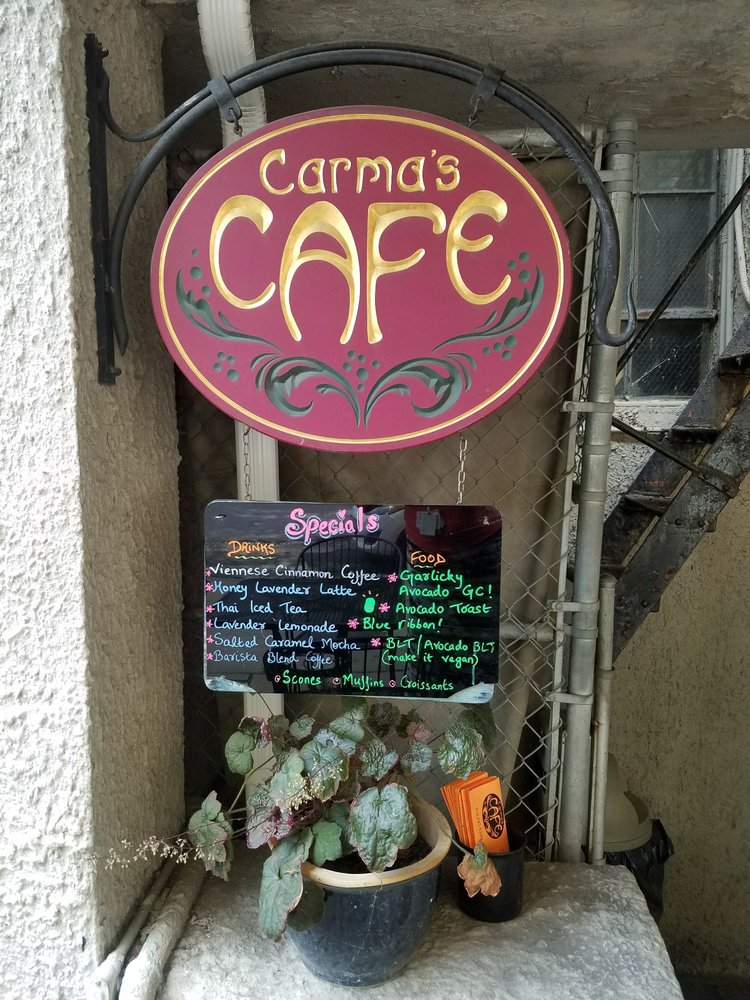 Carma's
CAFE
Specials
DRINKS
*Viennese Cinnamon Coffee
*Honey Lavender Latte
*Thai Iced Tea
*Lavender Lemonade
*Salted Caramel Mocha
*Barista Blend Coffee
FOOD
*Garlicky
Avocado GC!
*Avocado Toast
*Blue ribbon!
*BLT/Avocado BLT
(make it vegan)
Scones Muffins Croissants
CAFE